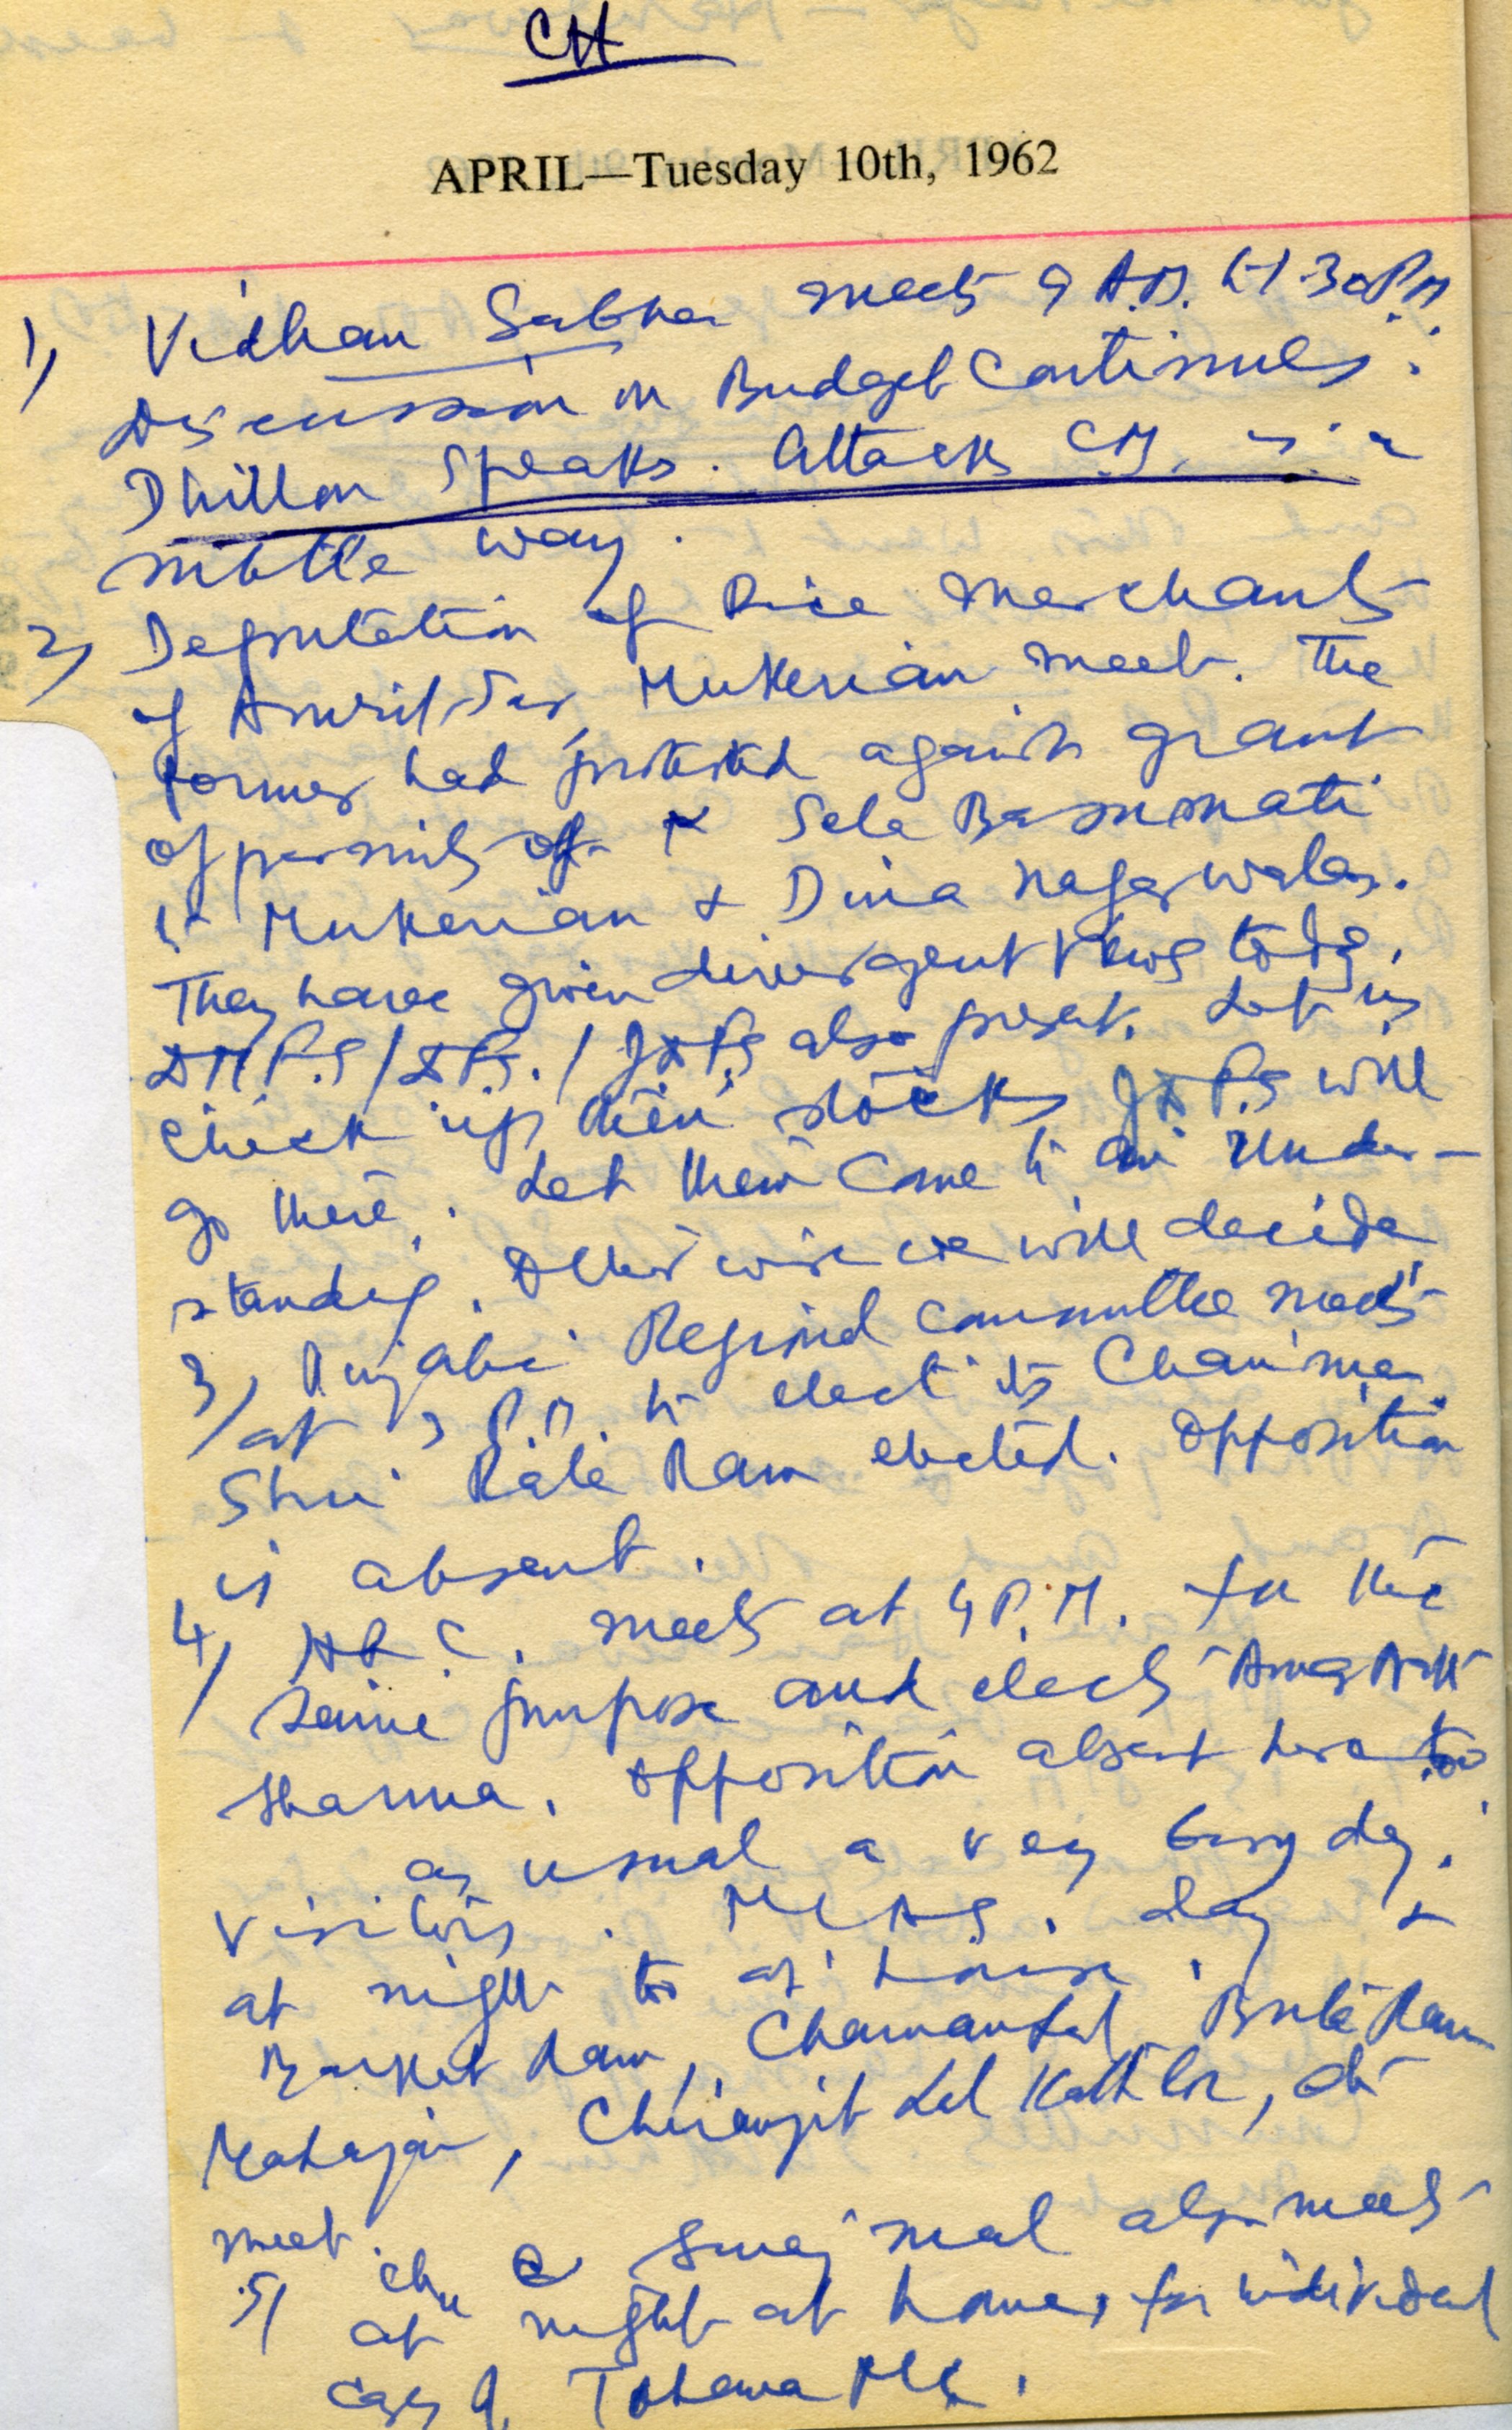 CH
APRIL—Tuesday 10th, 1962
1) Vidhan Sabha meets 9 A.M. to 1.30 P.M.
Discussion on Budget Continues.
Dhillon speaks. Attacks C.M. in a
subtle way.
2) Deputation of Rice merchants
of Amritsar, Mukerian meet. The
former had protested against grant
of permits of Sela Bassmati
to Mukerian & Dina nagar walas.
They have given divergent views today.
DMFS / DFS. / JDFS also present. Let us
check up their stocks JDFS will
go there. Let them come to an under-
standing. Otherwise we will decide
3) Punjabi Regional Committee meets
at 3 P.M. to elect its Chairman
Shri Rala Ram elected. Opposition
is absent.
4) HRC. meets at 4 P.M. for the
same purpose and elects Amar Nath
Sharma. Opposition absent here too
as usual a very busy day.
Visitors. MLAs. day &
at night too at house.
Barkat Ram, Chamanlal, Ram
Mahajan, Chiranjit Lal, etc
meet.
5) Ch. Suraj mal also meets
at night at home, for individual
case of Tohana MC.